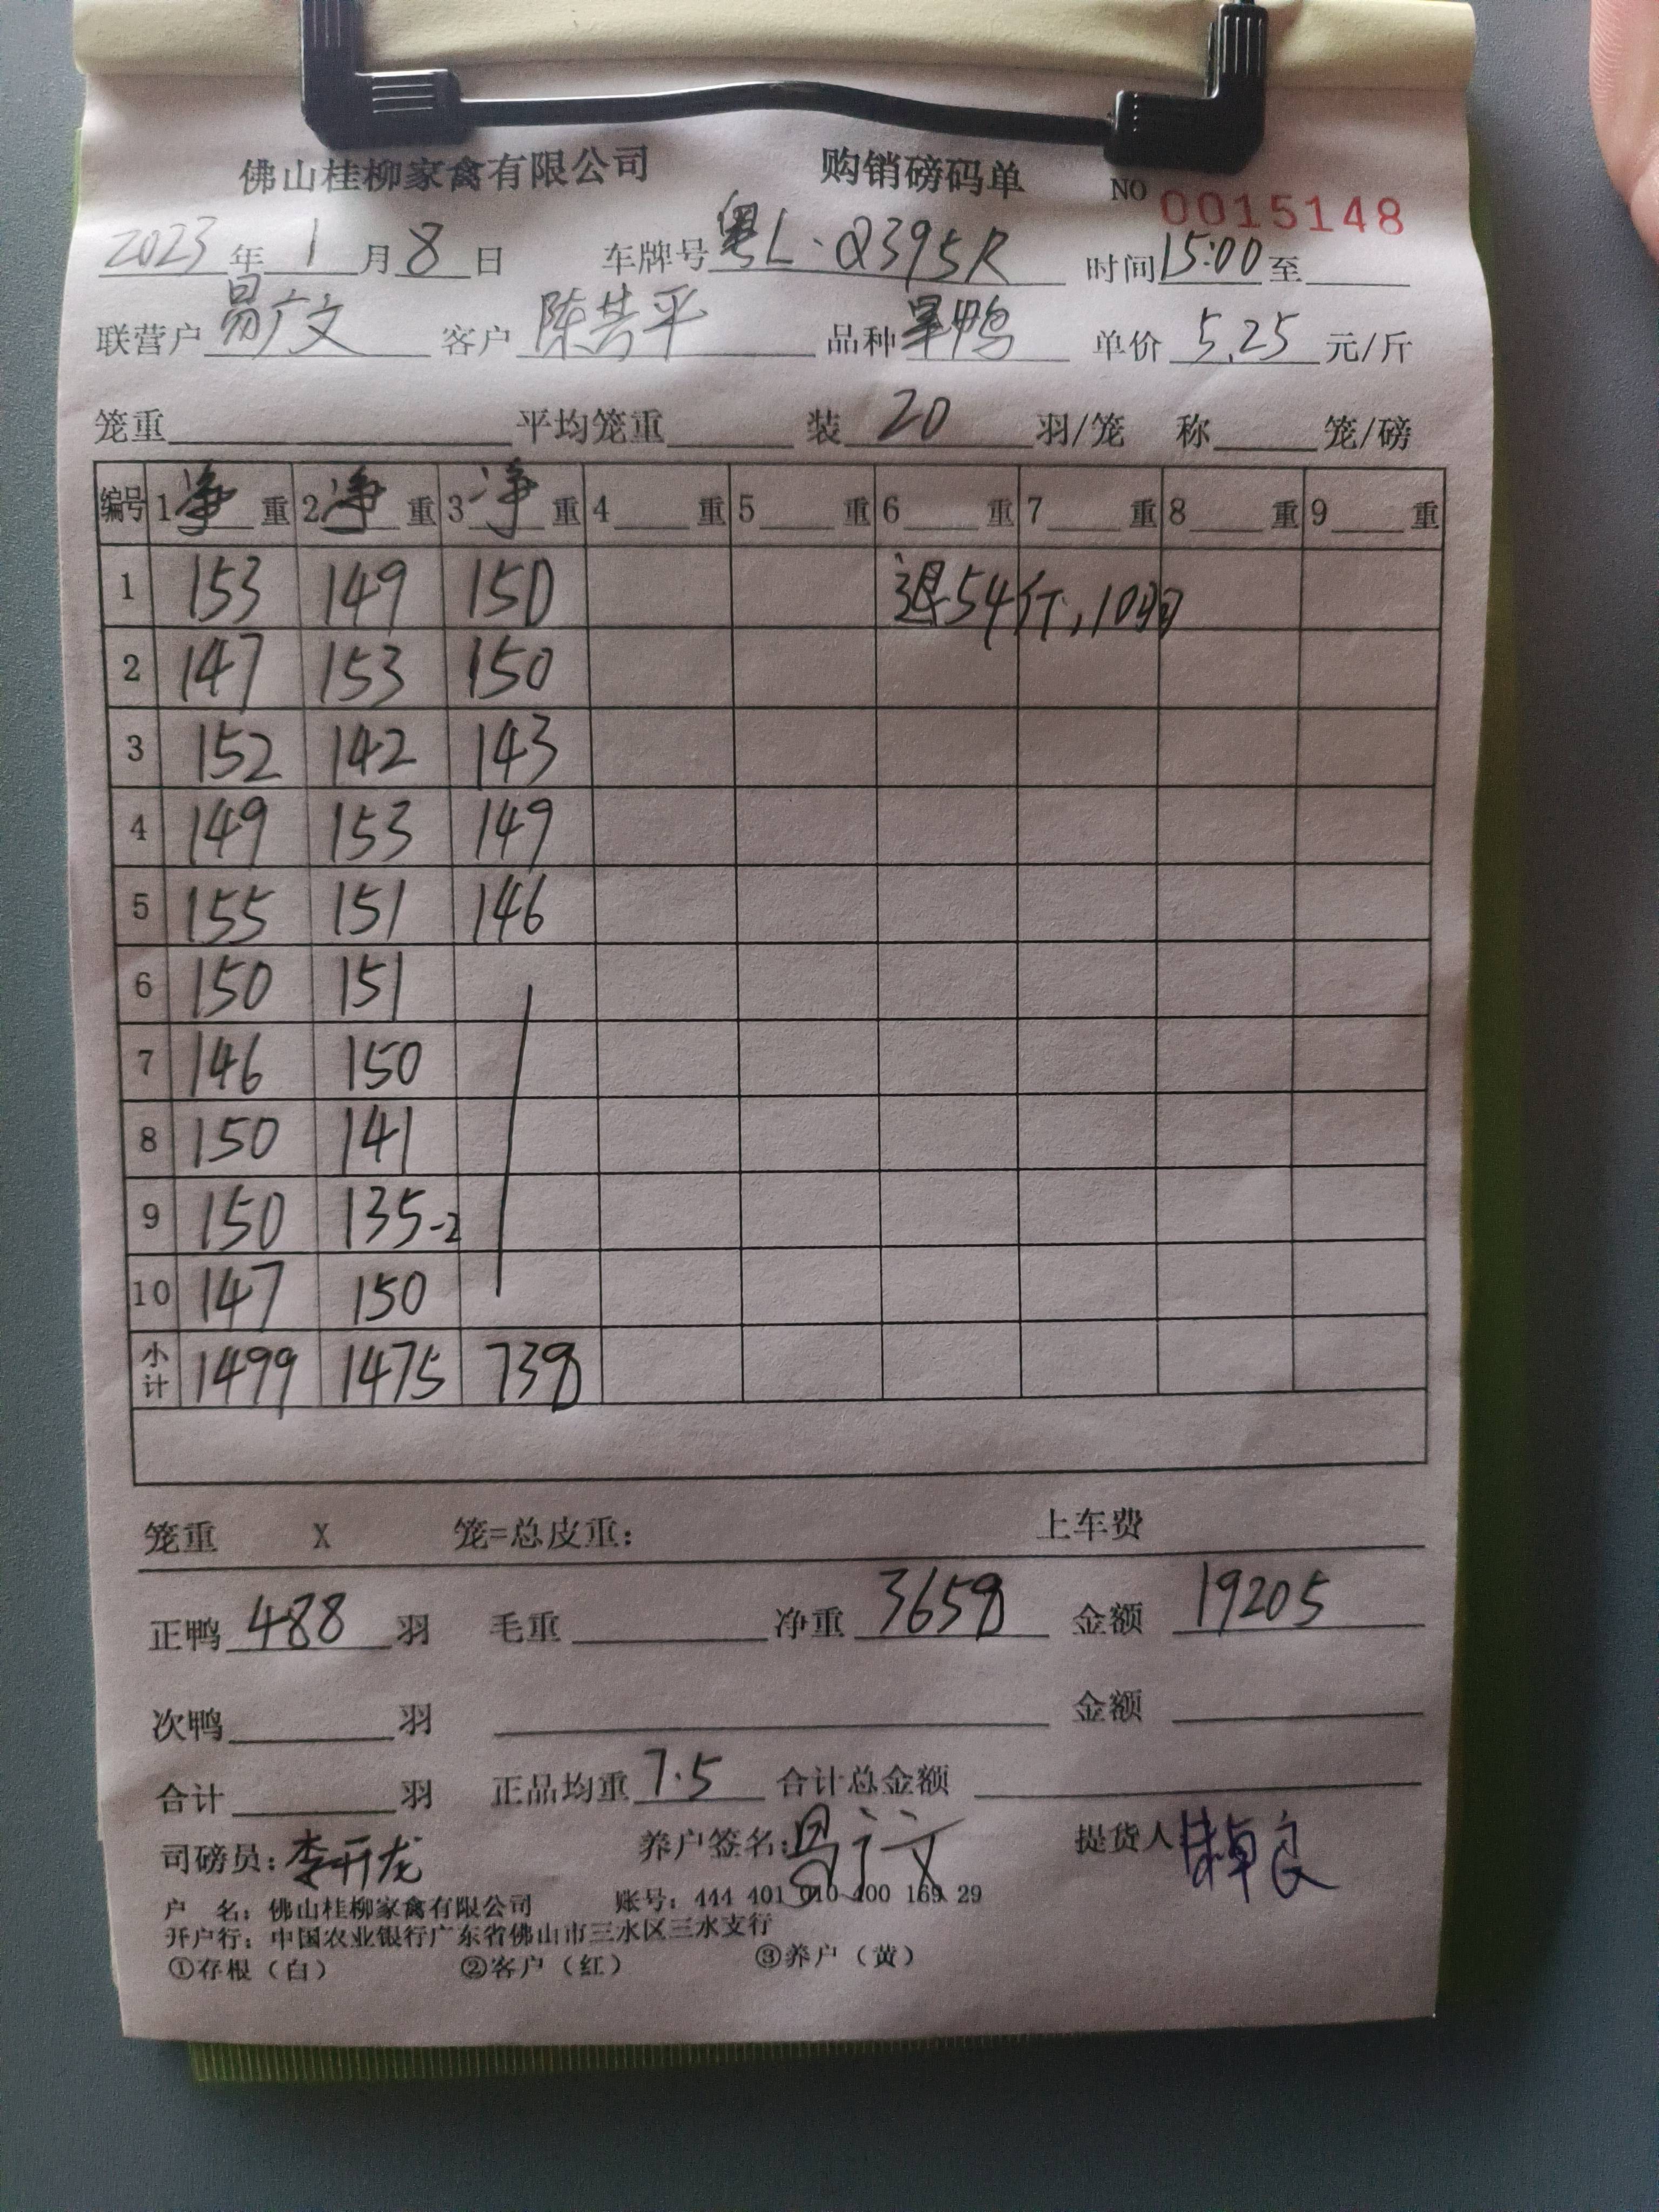 佛山桂柳家禽有限公司 购销磅码单 NO 0015148
2023年1月8日 车牌号 粤L·Q395R 时间 15:00 至
联营户 易广文 客户 陈芸平 品种 旱鸭 单价 5.25 元/斤
笼重 平均笼重 装 20 羽/笼 称 笼/磅
编号 1 净 重 2 净 重 3 净 重 4 重 5 重 6 重 7 重 8 重 9 重
1 153 149 150 退54斤,10羽
2 147 153 150
3 152 142 143
4 149 153 149
5 155 151 146
6 150 151
7 146 150
8 150 141
9 150 135-2
10 147 150
小计 1499 1475 738
笼重 X 笼=总皮重: 上车费
正鸭 488 羽 毛重 净重 3658 金额 19205
次鸭 羽 金额
合计 羽 正品均重 7.5 合计总金额
司磅员: 李开龙 养户签名: 易广文 提货人 卓良
户 名: 佛山桂柳家禽有限公司 账号: 444 401 010 400 169 29
开户行: 中国农业银行广东省佛山市三水区三水支行
①存根(白) ②客户(红) ③养户(黄)